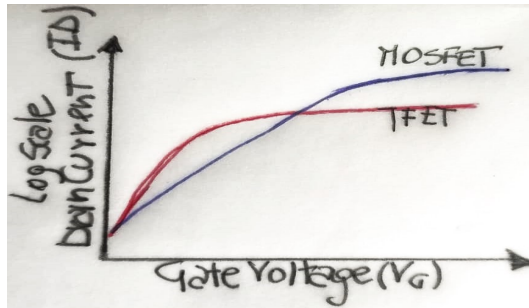 Log Scale
Drain Current (ID)
MOSFET
TFET
Gate Voltage (VG)